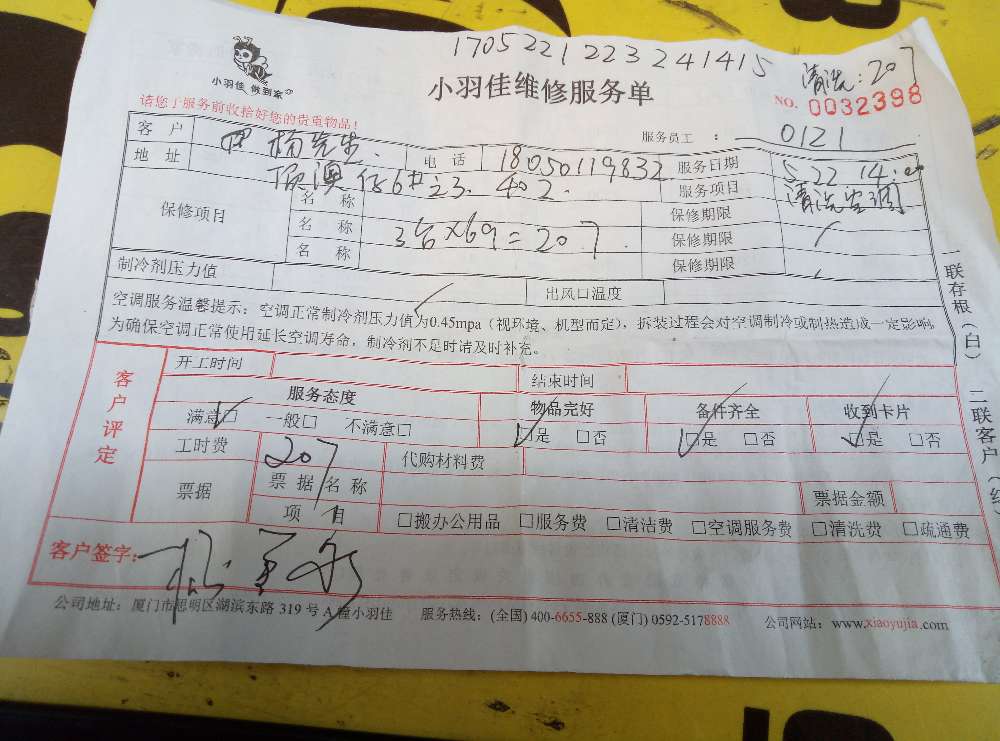 170522122324 1415
清洗:207
小羽佳 做到家
小羽佳维修服务单
NO. 0032398
请您于服务前收拾好您的贵重物品!
服务员工: 0121
客户 杨先生 电话 18050119832 服务日期 5.22 14:00
地址 澳仔6# 23.402. 服务项目 清洗空调
保修项目 名称 保修期限
名称 3台×69=207 保修期限
名称 保修期限
制冷剂压力值 出风口温度
空调服务温馨提示:空调正常制冷剂压力值为0.45mpa(视环境、机型而定),拆装过程会对空调制冷或制热造成一定影响,
为确保空调正常使用延长空调寿命,制冷剂不足时请及时补充。
一联存根(白) 二联客户
客户评定
开工时间 结束时间
服务态度 物品完好 备件齐全 收到卡片
满意□ 一般□ 不满意□ □是 □否 □是 □否 □是 □否
工时费 207 代购材料费
票据 票据名称 票据金额
项目 □搬办公用品 □服务费 □清洁费 □空调服务费 □清洗费 □疏通费
客户签字:
公司地址:厦门市思明区湖滨东路 319 号 A 幢小羽佳 服务热线:(全国) 400-6655-888 (厦门) 0592-5178888 公司网站:www.xiaoyujia.com